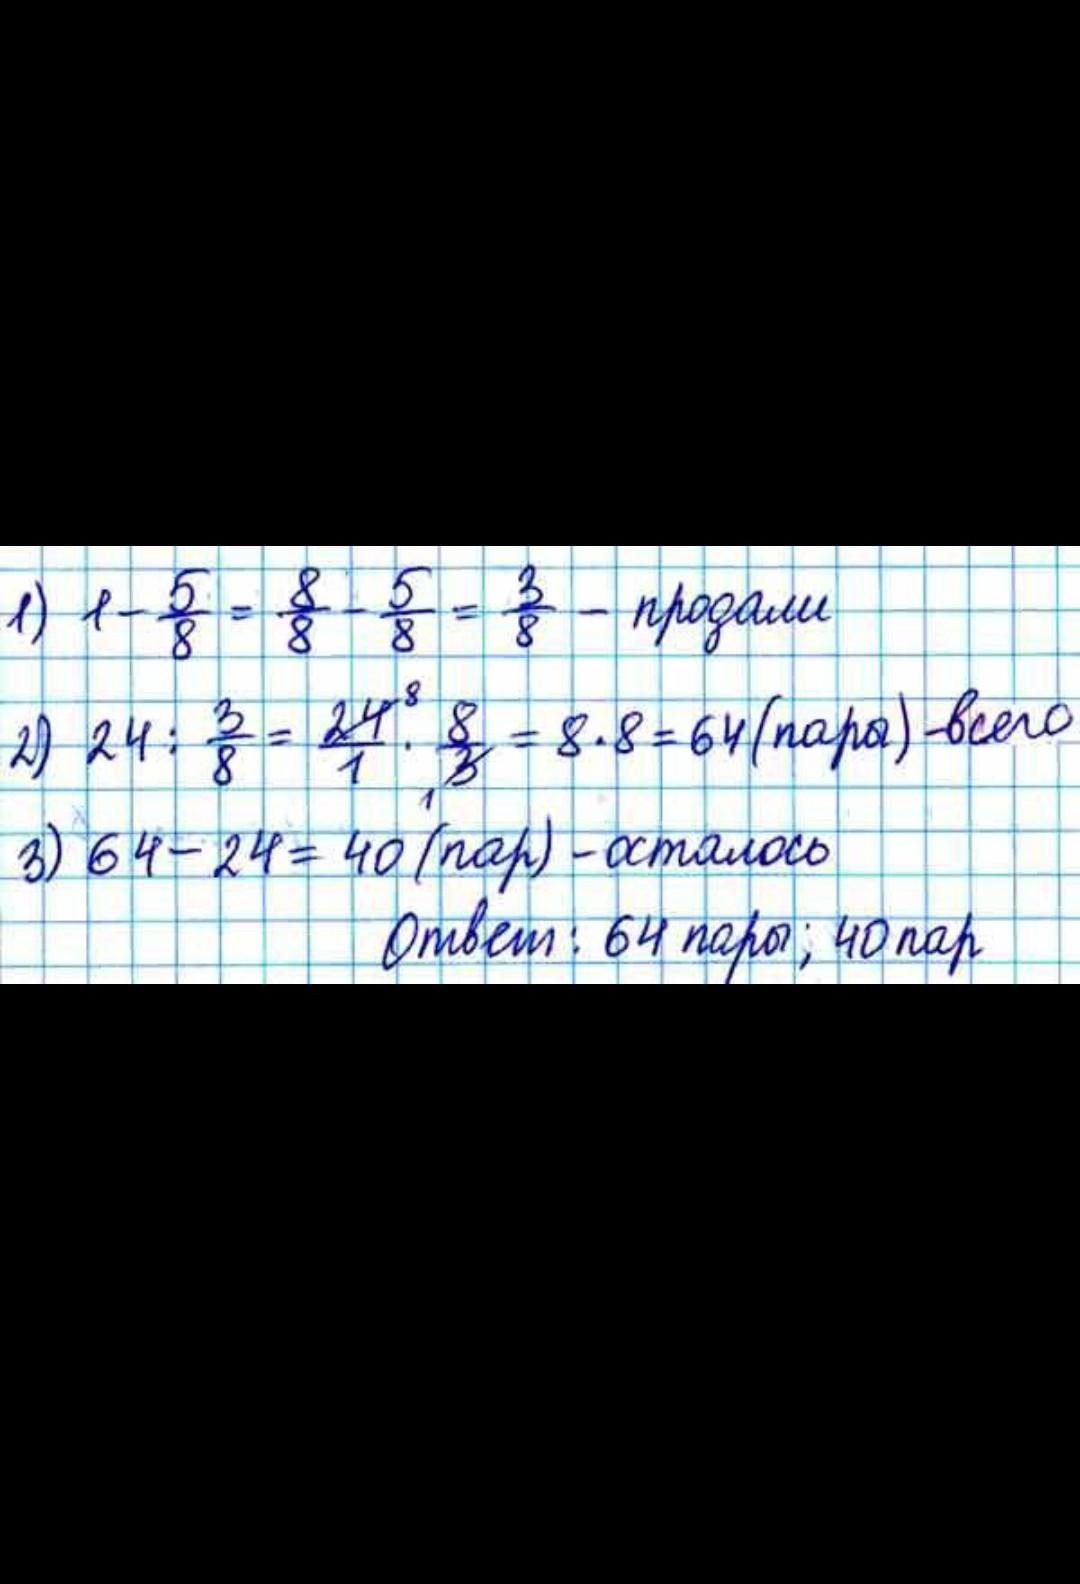 1) 1 - 5/8 = 8/8 - 5/8 = 3/8 - продали
2) 24 : 3/8 = 24⁸/1 · 8/3₁ = 8 · 8 = 64 (пары) - всего
3) 64 - 24 = 40 (пар) - осталось
Ответ: 64 пары; 40 пар